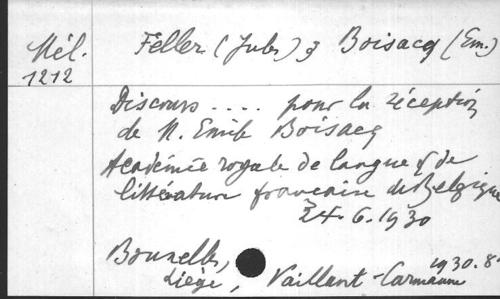 Mél.
1212
Feller (Jules) & Boisacq (Em.)
Discours .... pour la réception
de M. Emile Boisacq
Académie royale de langue & de
littérature française de Belgique
24.6.1930
Bruxelles,
Liége, Vaillant-Carmanne 1930.8°